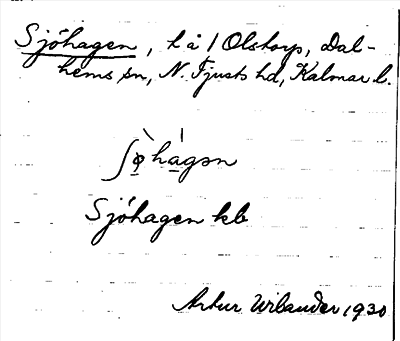 Sjöhagen, t å / Olstorp, Dal-
hems sn, N. Tjusts hd, Kalmar l.
ʃø̀hágən
Sjöhagen kb
Artur Wilander 1930